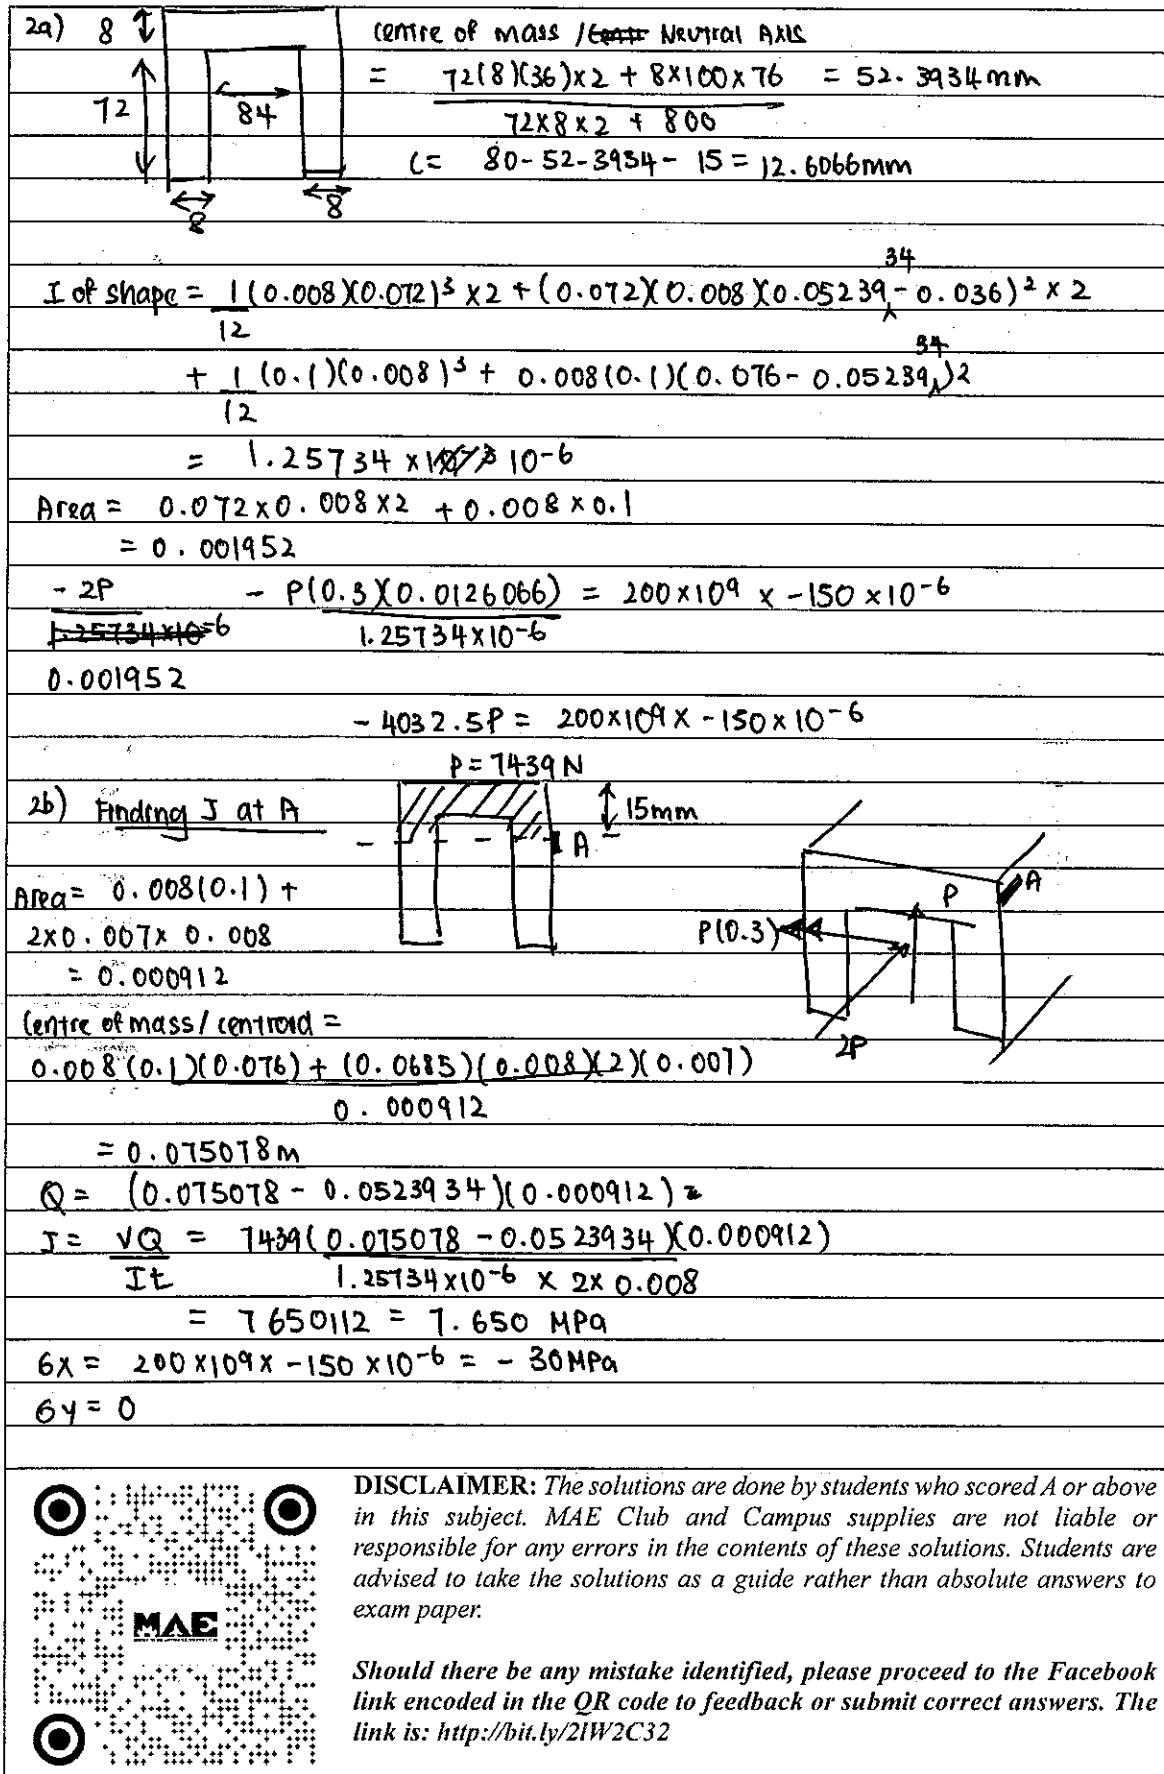 2a) 8 centre of mass / Neutral Axis
= 72(8)(36)×2 + 8×100×76 = 52.3934mm
72 84 72×8×2 + 800
C= 80-52-3934- 15 = 12.6066mm
8 8
I of shape = 1/12 (0.008)(0.072)³ ×2 + (0.072)(0.008)(0.0523934 - 0.036)² × 2
+ 1/12 (0.1)(0.008)³ + 0.008(0.1)(0.076 - 0.0523934)2
= 1.25734 × 10-6
Area = 0.072×0.008×2 + 0.008×0.1
= 0.001952
- 2P - P(0.3)(0.0126066) = 200×10⁹ × -150×10-6
1.25734×10-6 1.25734×10-6
0.001952
- 4032.5P = 200×10⁹ × -150×10-6
P = 7439N
2b) Finding J at A 15mm
A
Area = 0.008(0.1) +
2×0.007× 0.008
= 0.000912
P A
P(0.3)
2P
Centre of mass / centroid =
0.008(0.1)(0.076) + (0.0685)(0.008)(2)(0.007)
0.000912
= 0.075078m
Q = (0.075078 - 0.0523934)(0.000912) =
J = VQ = 7439(0.075078 - 0.0523934)(0.000912)
It 1.25734×10-6 × 2× 0.008
= 7650112 = 7.650 MPa
6x = 200×10⁹× -150×10-6 = - 30MPa
6y = 0
MAE
DISCLAIMER: The solutions are done by students who scored A or above
in this subject. MAE Club and Campus supplies are not liable or
responsible for any errors in the contents of these solutions. Students are
advised to take the solutions as a guide rather than absolute answers to
exam paper.
Should there be any mistake identified, please proceed to the Facebook
link encoded in the QR code to feedback or submit correct answers. The
link is: http://bit.ly/2IW2C32